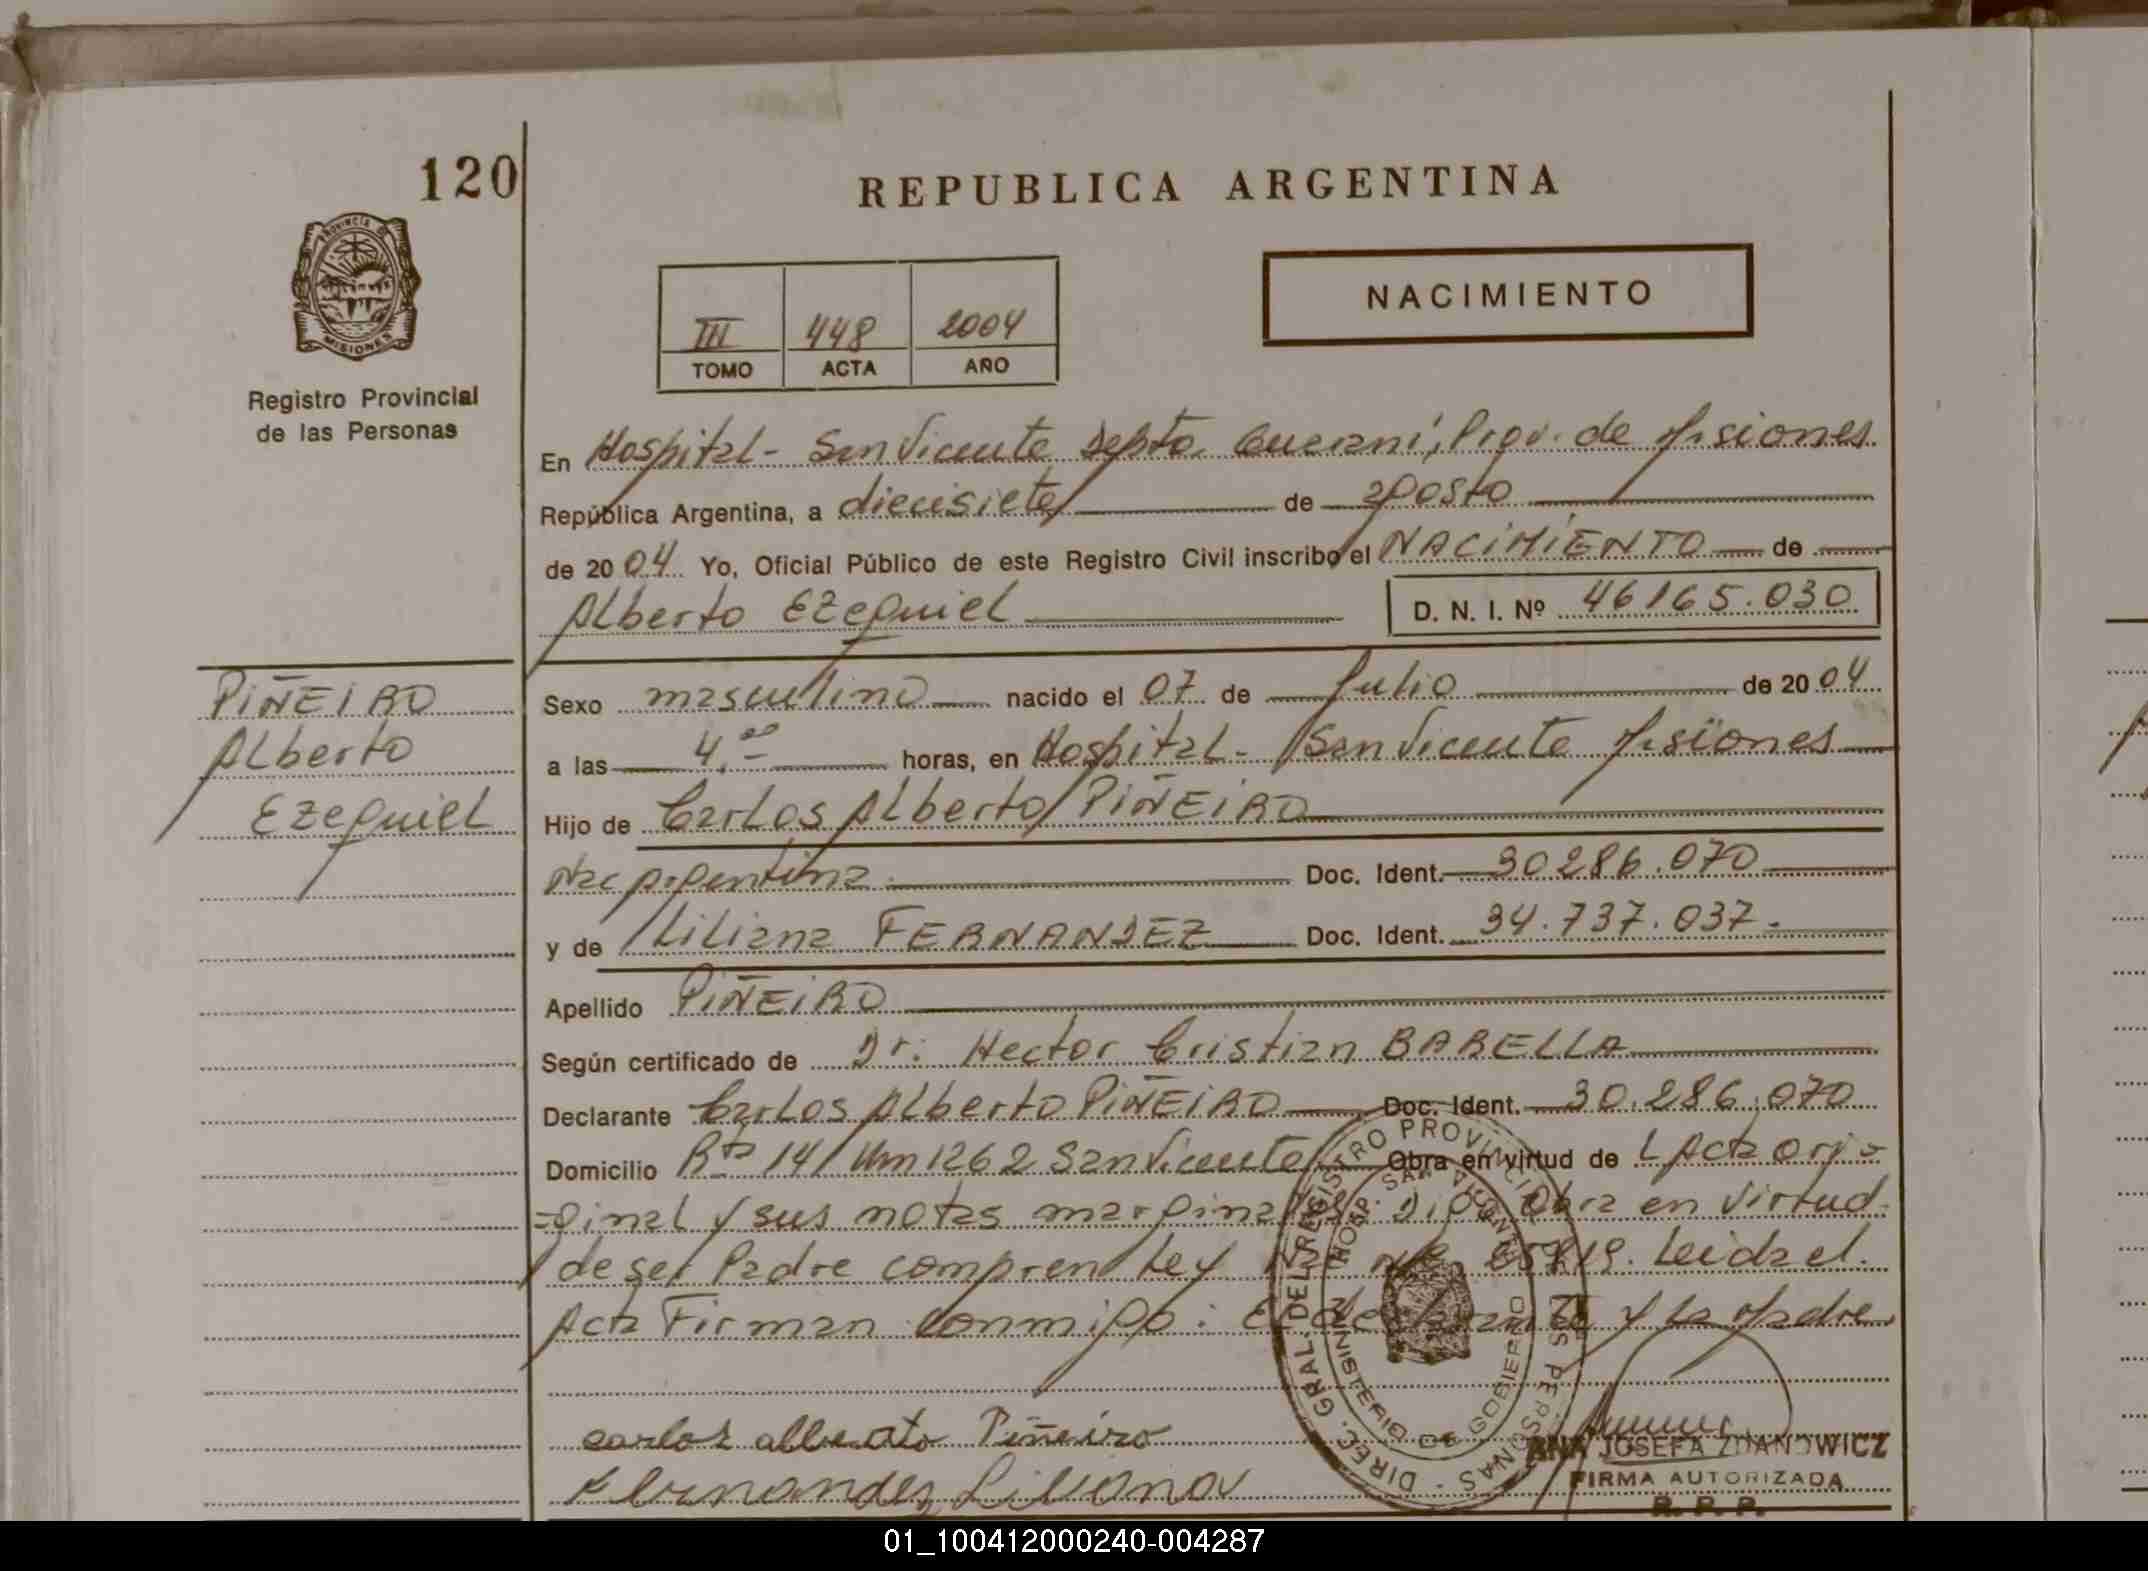 120
REPUBLICA ARGENTINA
NACIMIENTO
III 448 2004
TOMO ACTA AÑO
Provincia de
MISIONES
Registro Provincial
de las Personas
En Hospital - San Vicente Depto. Guaraní, Prov. de Misiones
República Argentina, a diecisiete de agosto
de 2004 Yo, Oficial Público de este Registro Civil inscribo el NACIMIENTO de
Alberto Ezequiel D. N. I. Nº 46165.030
PIÑEIRO
Alberto
Ezequiel
Sexo masculino nacido el 07 de Julio de 2004
a las 4.00 horas, en Hospital - San Vicente Misiones
Hijo de Carlos Alberto PIÑEIRO
Nac Argentina Doc. Ident. 30286.070
y de Liliana FERNANDEZ Doc. Ident. 34.737.037.-
Apellido PIÑEIRO
Según certificado de Dr. Hector Cristian BARELLA
Declarante Carlos Alberto PIÑEIRO Doc. Ident. 30.286.070
Domicilio Rta 14 Km 1262 San Vicente Obra en virtud de L Acta ori-
=ginal y sus notas marginales. Digo Obra en virtud
de ser Padre compren Ley Leida el
Acta Firman conmigo: El declarante y la Madre
carlos alberto Piñeiro
Fernandez Liliana
DIREC. GRAL. DEL REGISTRO PROVINCIAL DE LAS PERSONAS
HOSP. SAN VICENTE
MINISTERIO DE GOBIERNO
ANA JOSEFA ZDANOWICZ
FIRMA AUTORIZADA
R. P. P.
01_100412000240-004287